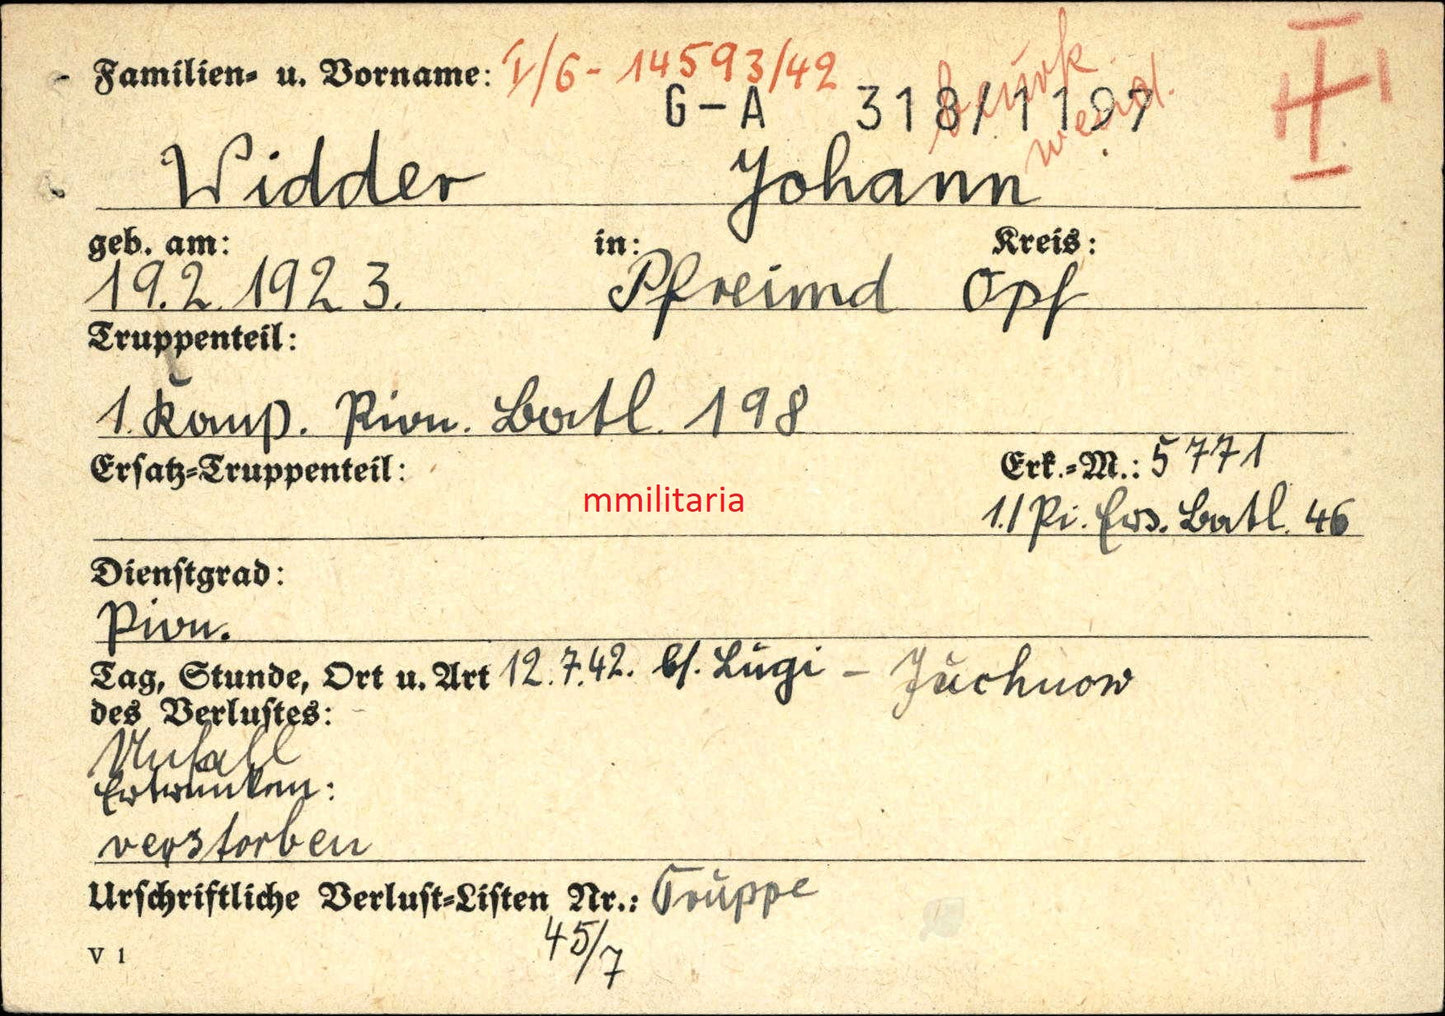 Familien- u. Vorname: I/6 - 14593/42
G-A 318/1197
Widder Johann
geb. am: in: Kreis:
19.2.1923. Pfreimd Opf
Truppenteil:
1. Komp. Pion. Batl. 198
Ersatz-Truppenteil: Erk.-M.: 5771
mmilitaria
1./Pi. Ers. Batl. 46
Dienstgrad:
Pion.
Tag, Stunde, Ort u. Art 12.7.42. bf. Lugi - Juchnow
des Verlustes:
Unfall
Ertrunken:
verstorben
Urschriftliche Verlust-Listen Nr.: Truppe
45/7
V 1